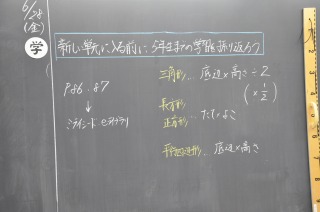 6/28
(金)
学
新しい単元に入る前に 5年生までの学習を振り返ろう
P86.87
↓
ミライシード eライブラリ
三角形… 底辺×高さ÷2
(×1/2)
長方形
正方形… たて×よこ
平行四辺形… 底辺×高さ